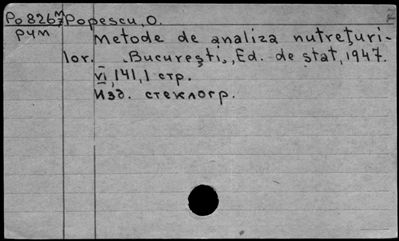 Po 826 м/7 Popescu, O.
рум
Metode de analiza nutreţuri-
lor. Bucureşti, Ed. de stat, 1947.
VI, 141, 1 стр.
Изд. стеклогр.